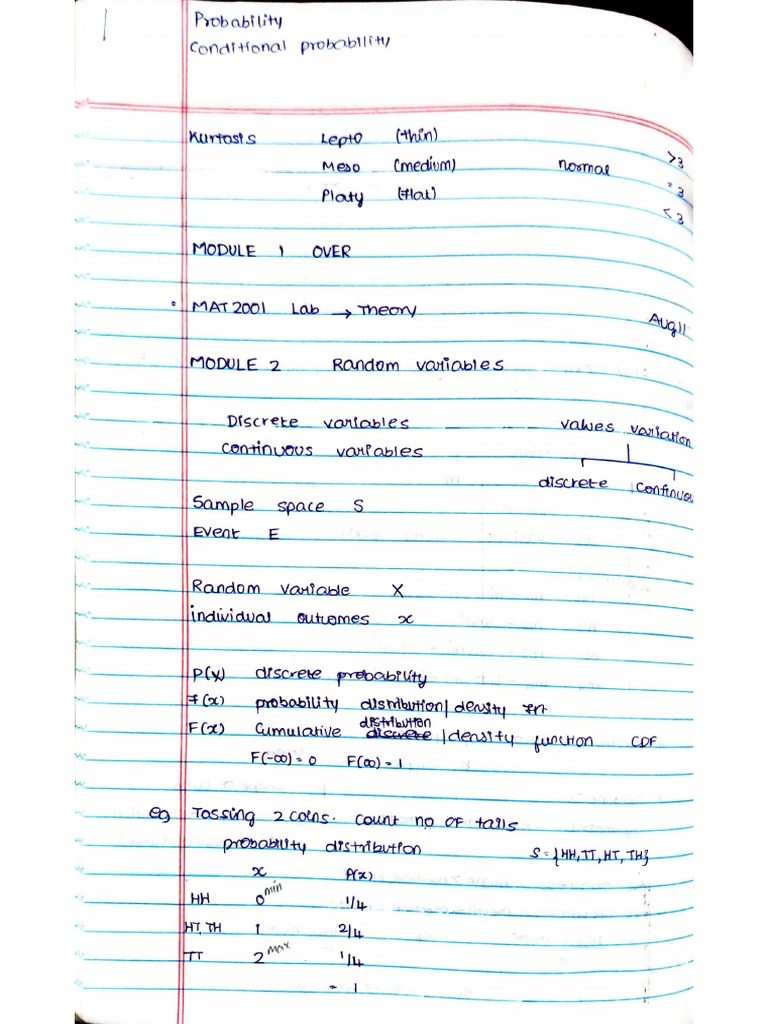 Probability
Conditional probability
Kurtosis Lepto (thin) >3
Meso (medium) normal = 3
Platy (flat) < 3
MODULE 1 OVER
• MAT2001 Lab → Theory
Aug 11
MODULE 2 Random variables
Discrete variables values variation
Continuous variables
discrete continuou
Sample space S
Event E
Random variable X
individual outcomes x
P(x) discrete probability
f(x) probability distribution/density fn
F(x) Cumulative discrete distribution/density function CDF
F(-∞) = 0 F(∞) = 1
eg Tossing 2 coins. count no of tails
probability distribution S = {HH, TT, HT, TH}
x P(x)
HH 0 min 1/4
HT, TH 1 2/4
TT 2 Max 1/4
= 1